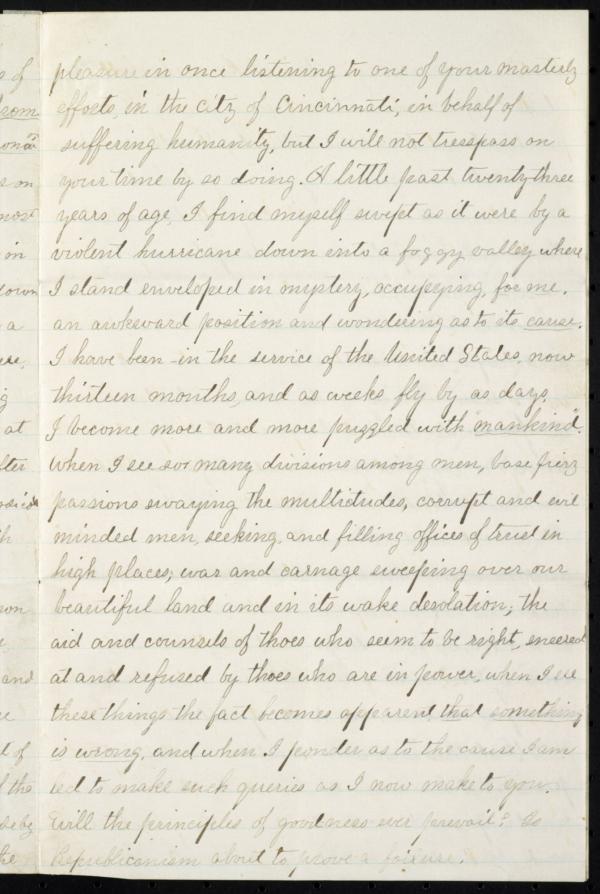 pleasure in once listening to one of your masterly
efforts, in the city of Cincinnati, in behalf of
suffering humanity, but I will not tresspass on
your time by so doing. A little past twenty three
years of age, I find myself swept as it were by a
violent hurricane down into a foggy valley where
I stand enveloped in mystery, occupeying, for me,
an awkward position and wondering as to its cause.
I have been in the service of the United States now
thirteen months, and as weeks fly by as days,
I become more and more puzzled with "mankind".
When I see so many divisions among men, base firey
passions swaying the multictudes, corrupt and evil
minded men, seeking, and filling offices of trust in
high places, war and carnage sweeping over our
beautiful land and in its wake desolation; the
aid and counsels of thoes who seem to be right, sneered
at and refused by thoes who are in power, when I see
these things the fact becomes apparent that something
is wrong, and when I ponder as to the cause I am
led to make such queries as I now make to you.
Will the principles of goodness ever prevail? Is
Republicanism about to prove a failure.